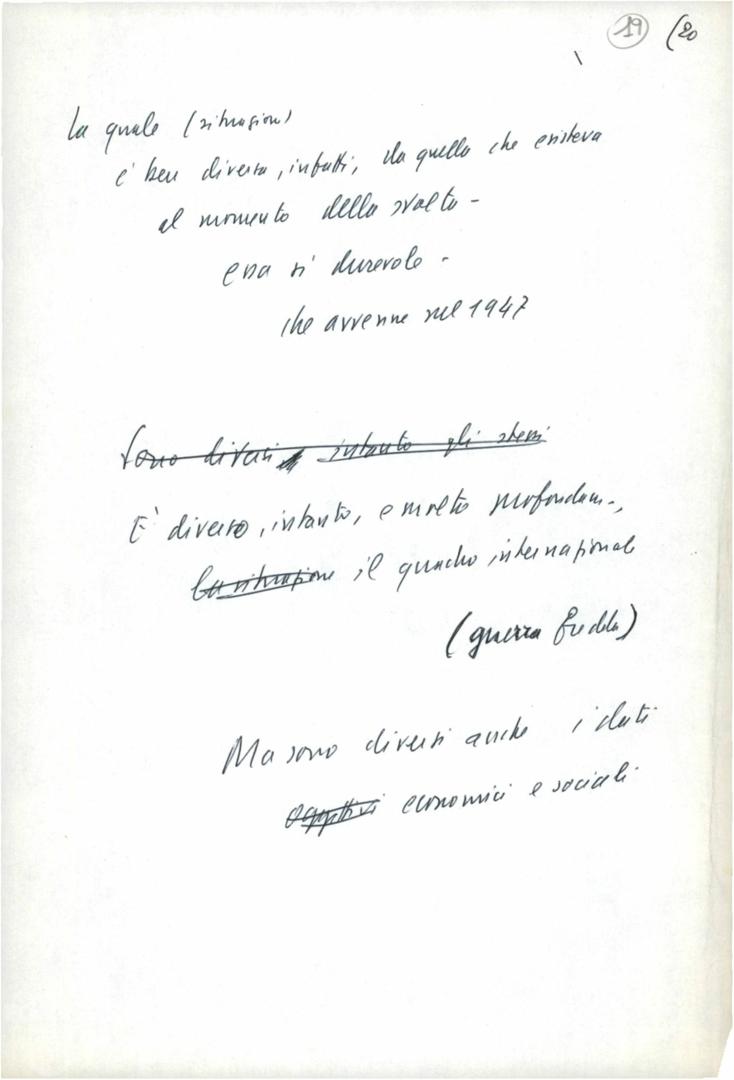 19 (20
la quale (situazione)
è ben diversa, infatti, da quella che esisteva
al momento della svolta -
essa sì durevole -
che avvenne nel 1947
Sono diversi intanto gli stessi
È diverso, intanto, e molto profondam.,
la situazione il quadro internazionale
(guerra fredda)
Ma sono diversi anche i dati
oggettivi economici e sociali